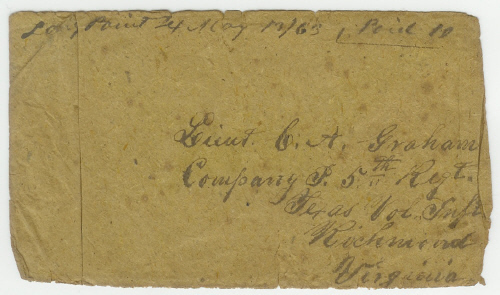 Long Point 4 May 12/63 Paid 10
Lieut. C. A. Graham
Company I. 5th Regt.
Texas Vol. Inft
Richmond
Virginia